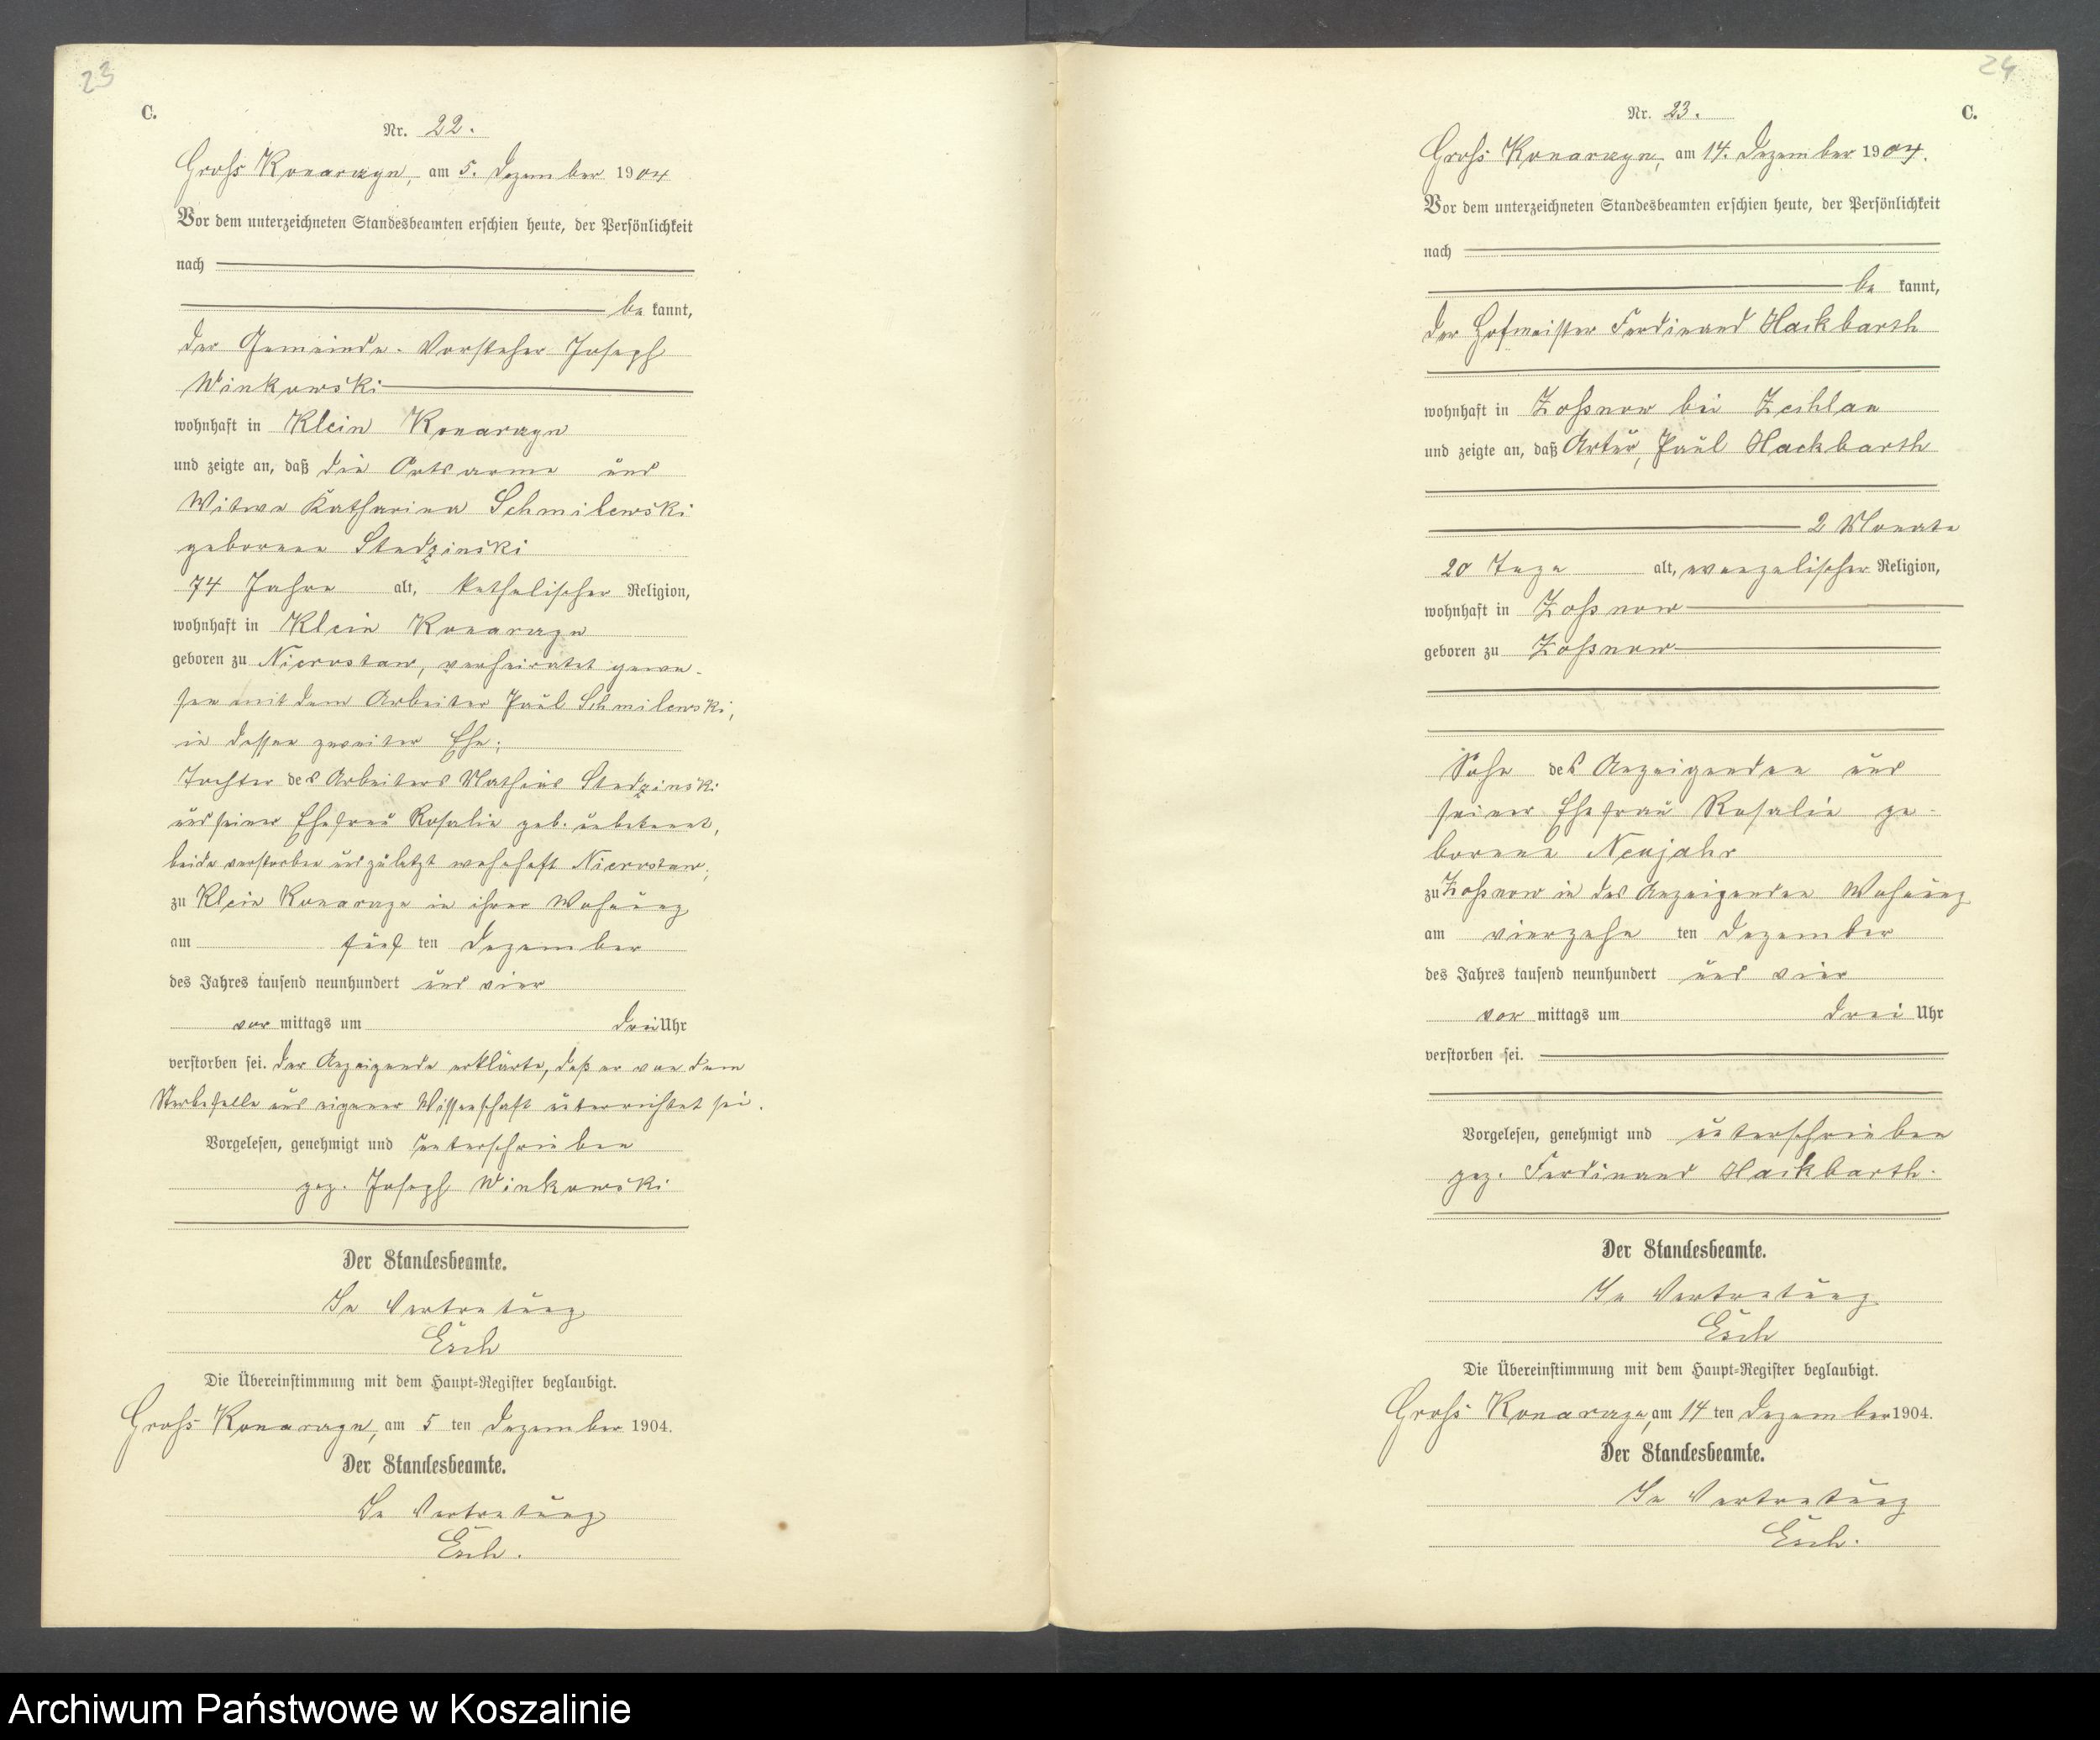 23
C.
Nr. 22.
Groß Konarzyn, am 5. Dezember 1904
Vor dem unterzeichneten Standesbeamten erschien heute, der Persönlichkeit
nach
be kannt,
der Gemeinde-Vorsteher Joseph
Winkowski
wohnhaft in Klein Konarzyn
und zeigte an, daß die Ortsarme und
Witwe Katharina Schmilewski
geborene Studzinski
74 Jahre alt, katholischer Religion,
wohnhaft in Klein Konarzyn
geboren zu Nierostaw, verheiratet gewe-
sen mit dem Arbeiter Paul Schmilewski,
in dessen zweiter Ehe;
Tochter des Arbeiters Mathias Studzinski
und seiner Ehefrau Rosalie geb. unbekannt,
beide verstorben und zuletzt wohnhaft Nierostaw;
zu Klein Konarzyn in ihrer Wohnung
am fünf ten Dezember
des Jahres tausend neunhundert und vier
vor mittags um drei Uhr
verstorben sei. Der Anzeigende erklärte, daß er von dem
Sterbefalle aus eigener Wissenschaft unterrichtet sei.
Vorgelesen, genehmigt und unterschrieben
gez. Joseph Winkowski
Der Standesbeamte.
In Vertretung
Esch
Die Übereinstimmung mit dem Haupt-Register beglaubigt.
Groß Konarzyn, am 5 ten Dezember 1904.
Der Standesbeamte.
In Vertretung
Esch.
24
C.
Nr. 23.
Groß Konarzyn, am 14. Dezember 1904.
Vor dem unterzeichneten Standesbeamten erschien heute, der Persönlichkeit
nach
be kannt,
der Hofmeister Ferdinand Hackbarth
wohnhaft in Zoßnow bei Zechlau
und zeigte an, daß Artur, Paul Hackbarth
2 Monate
20 Tage alt, evangelischer Religion,
wohnhaft in Zoßnow
geboren zu Zoßnow
Sohn des Anzeigenden und
seiner Ehefrau Rosalie ge-
borene Neujahr
zu Zoßnow in des Anzeigenden Wohnung
am vierzehn ten Dezember
des Jahres tausend neunhundert und vier
vor mittags um drei Uhr
verstorben sei.
Vorgelesen, genehmigt und unterschrieben
gez. Ferdinand Hackbarth.
Der Standesbeamte.
In Vertretung
Esch
Die Übereinstimmung mit dem Haupt-Register beglaubigt.
Groß Konarzyn, am 14 ten Dezember 1904.
Der Standesbeamte.
In Vertretung
Esch.
Archiwum Państwowe w Koszalinie